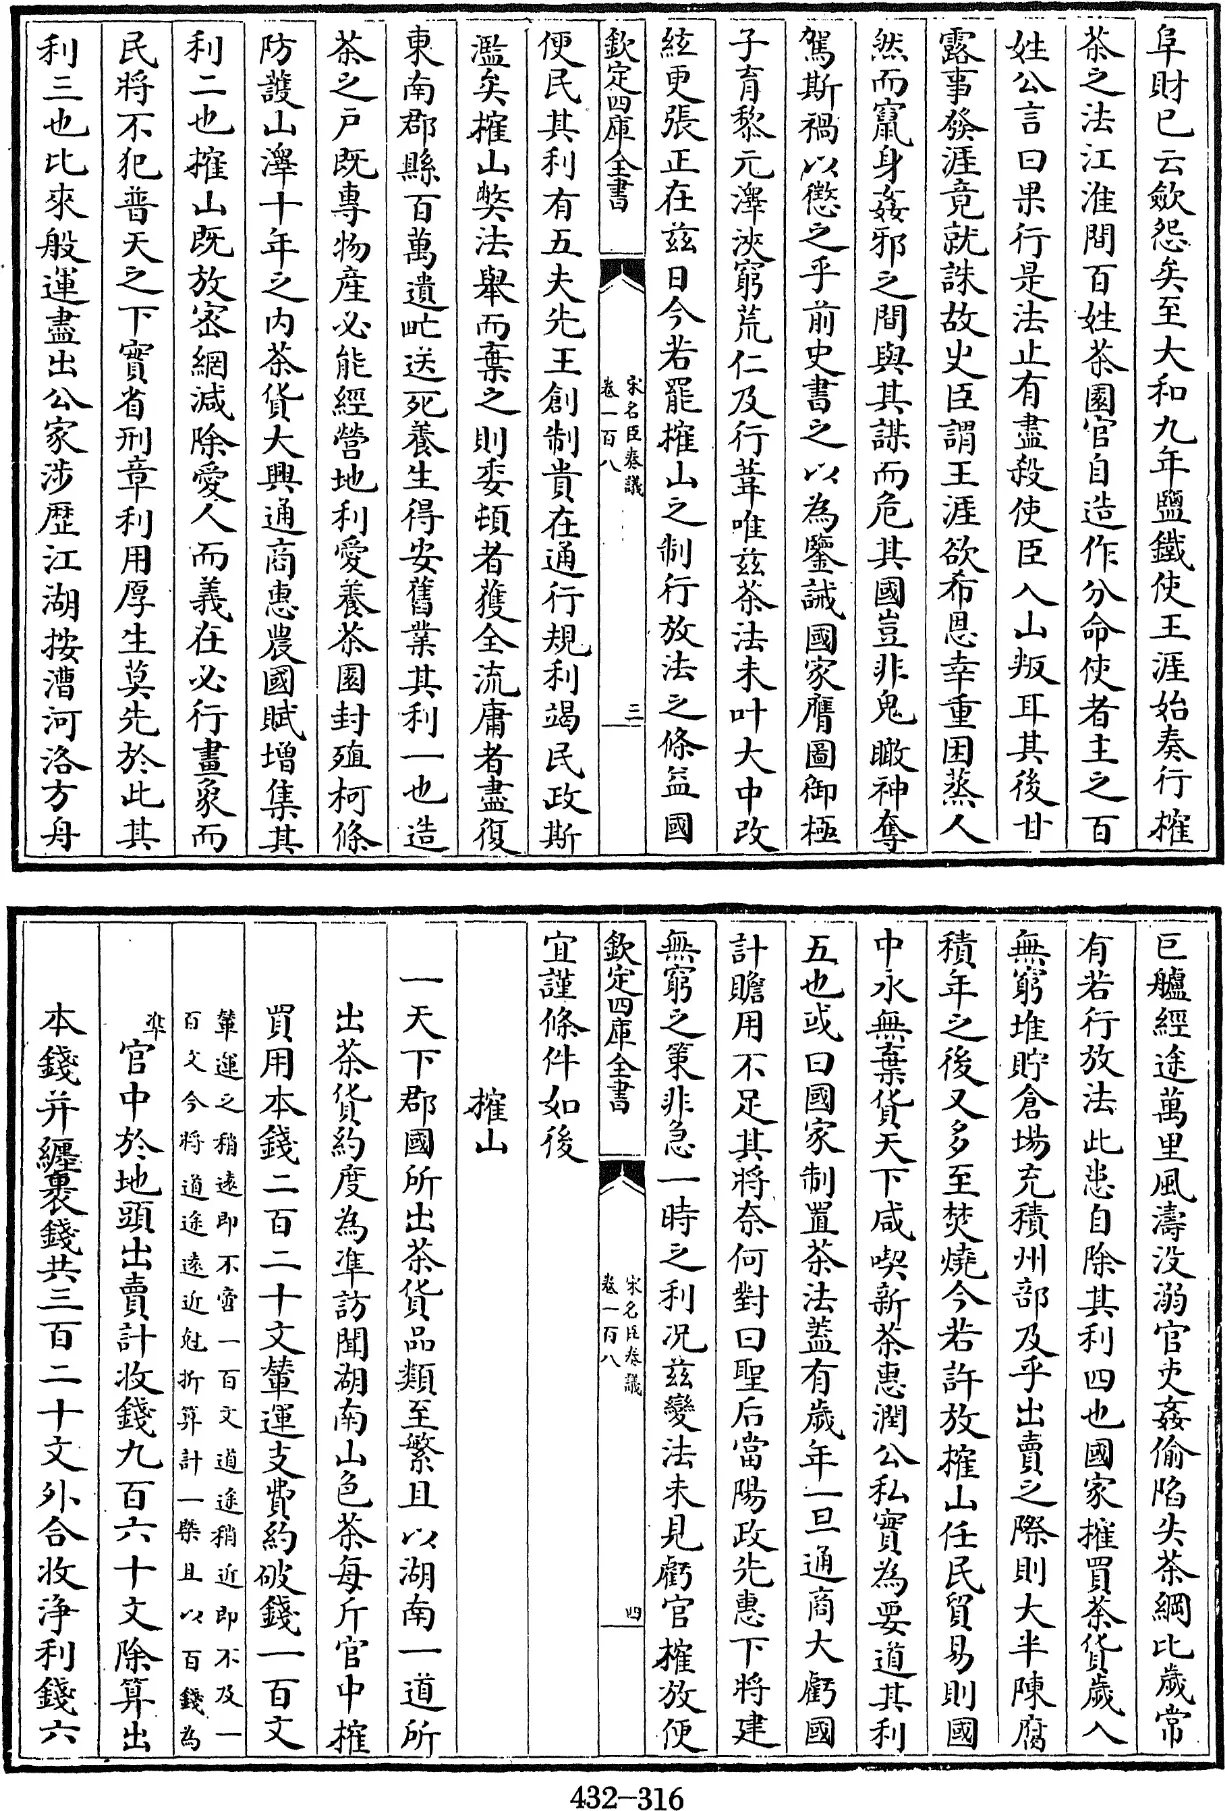 阜財已云斂怨矣至大和九年鹽鐵使王涯始奏行榷
茶之法江淮間百姓茶園官自造作分命使者主之百
姓公言曰果行是法止有盡殺使臣入山叛耳其後甘
露事發涯竟就誅故史臣謂王涯欲希恩幸重困蒸人
然而竄身姦邪之間與其謀而危其國豈非鬼瞰神奪
駕斯禍以懲之乎前史書之以為鑒誡國家膺圖御極
子育黎元澤浹窮荒仁及行葦唯茲茶法未叶大中改
絃更張正在茲日今若罷榷山之制行放法之條益國
欽定四庫全書
宋名臣奏議
卷一百八
三
便民其利有五夫先王創制貴在通行規利竭民政斯
濫矣榷山獘法舉而棄之則委頓者獲全流庸者盡復
東南郡縣百萬遺甿送死養生得安舊業其利一也造
茶之戶既專物產必能經營地利愛養茶園封殖柯條
防護山澤十年之內茶貨大興通商惠農國賦增集其
利二也榷山既放密網減除愛人而義在必行畫象而
民將不犯普天之下實省刑章利用厚生莫先於此其
利三也比來般運盡出公家涉歷江湖按漕河洛方舟
巨艫經途萬里風濤没溺官吏姦偷陷失茶綱比歲常
有若行放法此患自除其利四也國家榷買茶貨歲入
無窮堆貯倉場充積州部及乎出賣之際則大半陳腐
積年之後又多至焚燒今若許放榷山任民貿易則國
中永無棄貨天下咸喫新茶惠潤公私實為要道其利
五也或曰國家制置茶法蓋有歲年一旦通商大虧國
計贍用不足其將奈何對曰聖后當陽政先惠下將建
無窮之策非急一時之利况茲變法未見虧官榷放便
欽定四庫全書
宋名臣奏議
卷一百八
四
宜謹條件如後
榷山
一天下郡國所出茶貨品類至繁且以湖南一道所
出茶貨約度為準訪聞湖南山色茶每斤官中榷
買用本錢二百二十文輦運支費約破錢一百文
輦運之稍遠即不啻一百文道途稍近即不及一
百文今將道途遠近尅折算計一槩且以百錢為
準
官中於地頭出賣計收錢九百六十文除算出
本錢并纏裹錢共三百二十文外合收淨利錢六
432-316